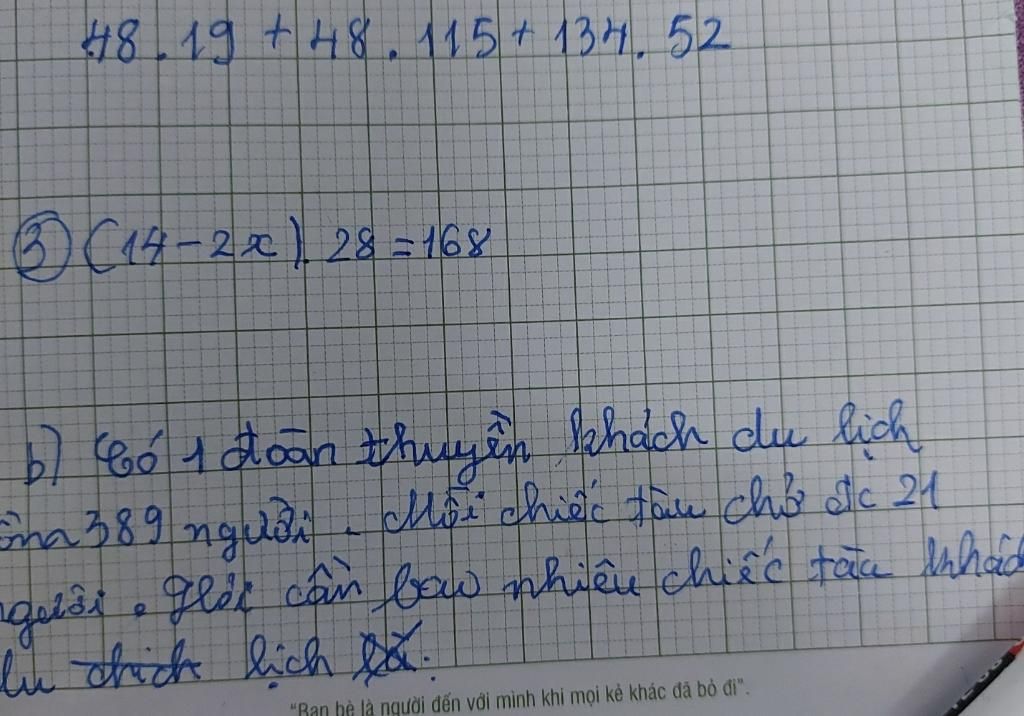 48.19 + 48.115 + 134.52
③ (14 - 2x). 28 = 168
b) Có 1 đoàn thuyền khách du lịch
389 người. Mỗi chiếc tàu chở đc 21
người. Hỏi cần bao nhiêu chiếc tàu khác
du lịch
"Bạn bè là người đến với mình khi mọi kẻ khác đã bỏ đi".